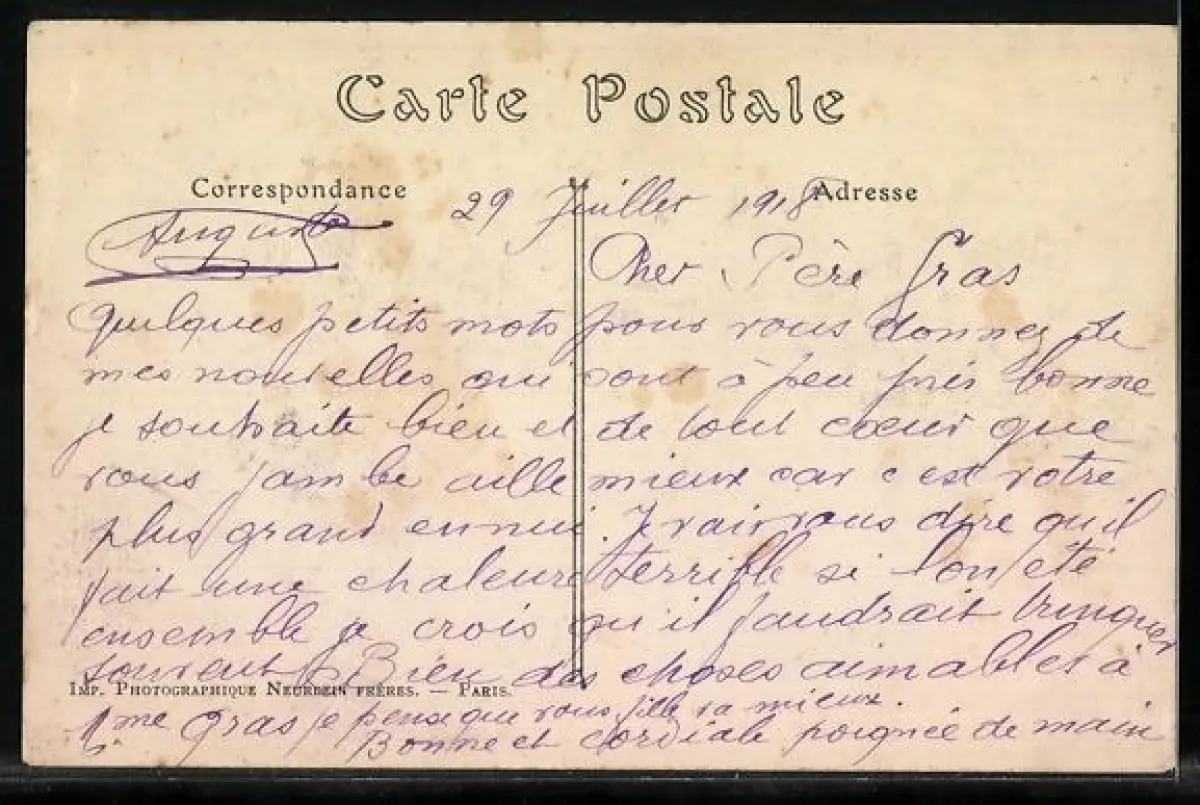 Carte Postale
Correspondance
Adresse
29 Juillet 1918
Auguste
Cher Père Gras
Quelques petits mots pour vous donnez de
mes nouvelles qui sont à peu près bonne
je souhaite bien et de tout cœur que
vous jambe aille mieux car c est votre
plus grand ennui. Je vais vous dire qu'il
fait une chaleure terrible si lon été
ensemble je crois qu'il faudrait trinquer
souvent Bien des choses aimables à
Imp. Photographique Neurdein frères. — Paris.
Mme Gras je pense que vous fille va mieux.
Bonne et cordiale poignée de main